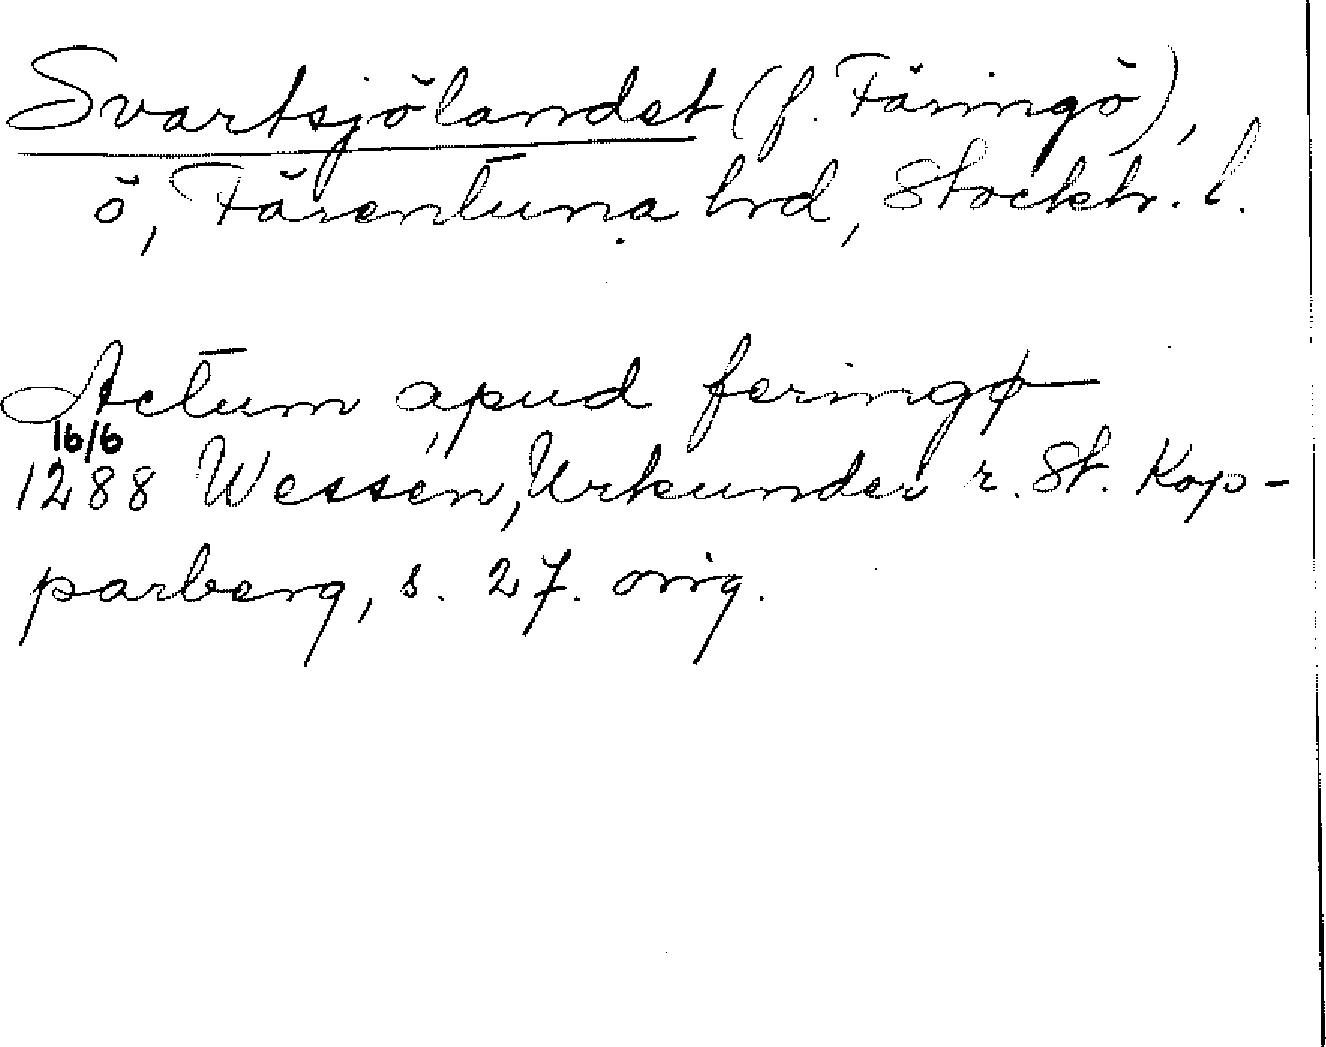 Svartsjölandet (f. Färingö),
ö, Färentuna hrd, Stockh. l.
Actum apud feringø
16/6
1288 Wessén, Urkunder r. St. Kop-
parberg, s. 27. orig.